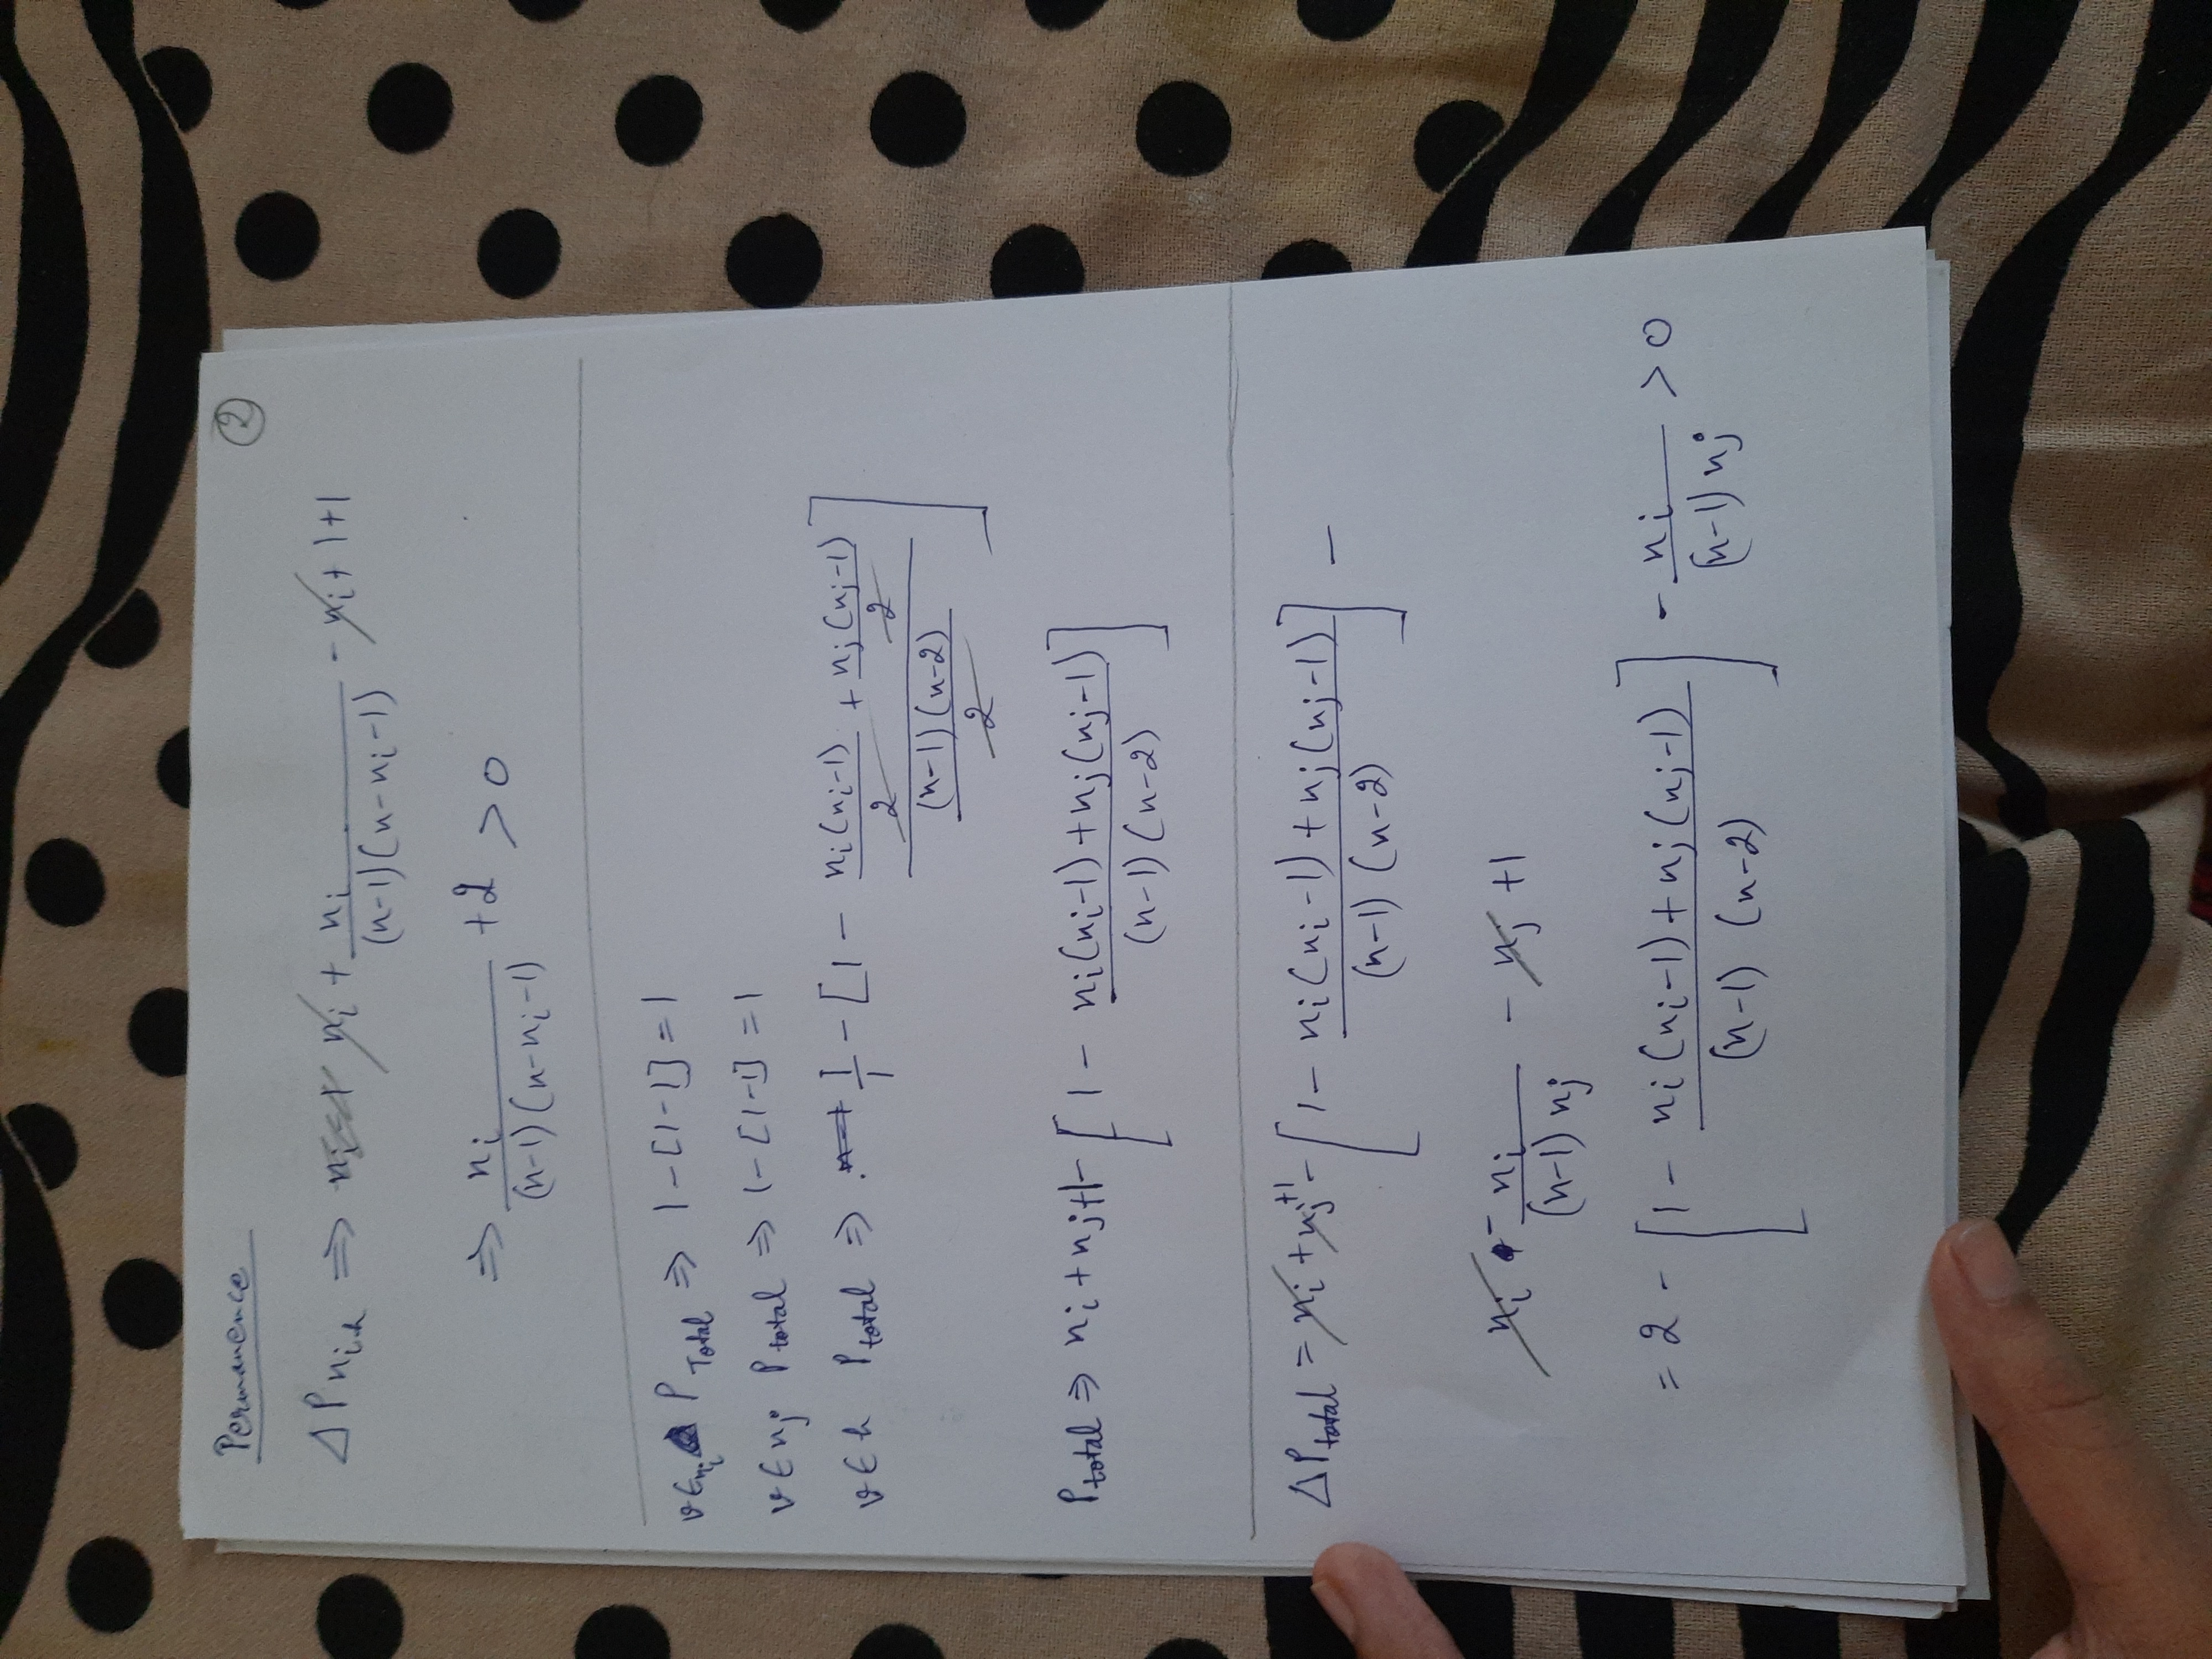 Permanence
②
ΔP n_{i,h} ⇒ n_i + n_i/((n-1)(n-n_i-1)) - n_i + 1+1
⇒ n_i/((n-1)(n-n_i-1)) +2 > 0
v∈n_i P_Total ⇒ 1-[1-1] = 1
v∈n_j P_total ⇒ 1-[1-1] = 1
v∈h P_total ⇒ 1/1 - [1 - (n_i(n_i-1)/2 + n_j(n_j-1)/2)/((n-1)(n-2)/2)]
P_total ⇒ n_i + n_j + 1 - [1 - (n_i(n_i-1) + n_j(n_j-1))/((n-1)(n-2))]
ΔP_total = n_i + n_j +1 - [1 - (n_i(n_i-1) + n_j(n_j-1))/((n-1)(n-2))] -
n_i - n_i/((n-1)n_j) - n_j +1
= 2 - [1 - (n_i(n_i-1) + n_j(n_j-1))/((n-1)(n-2))] - n_i/((n-1)n_j) > 0